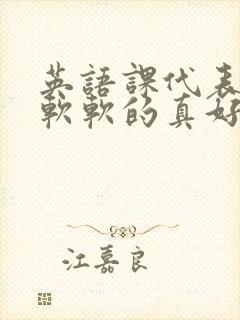 英語課代表
軟軟的真好
江嘉良